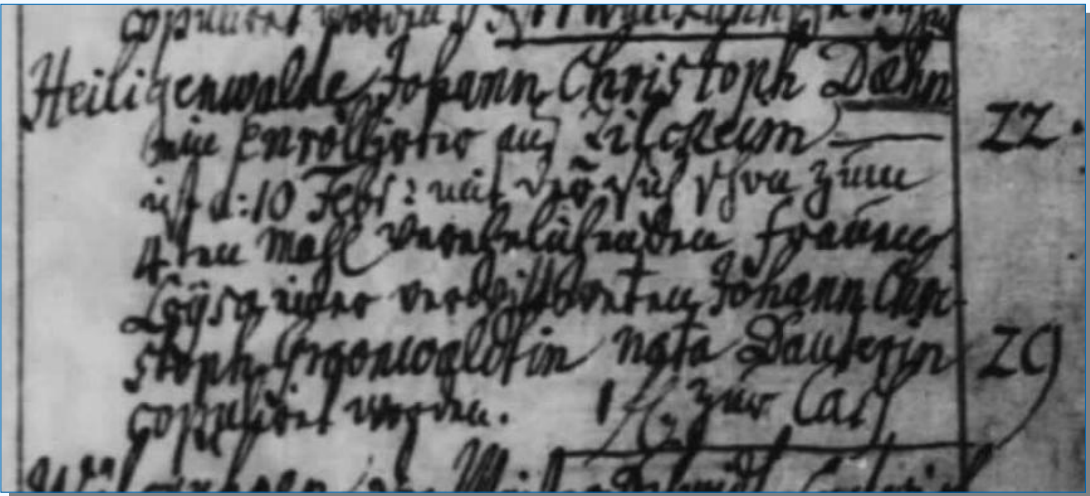 copuliret worden
Heiligenwalde Johann Christoph Dæhn 22.
ein Enrollirter aus Zilckeim
ist d: 10 Febr: mit der sich schon zum
4ten Mahl verehelichenden Frauen
Loysa einer verwittbeten Johann Chri-
stoph Gronwaldtin nata Dauterin 29
copuliret worden. 1 fl. zur Cass